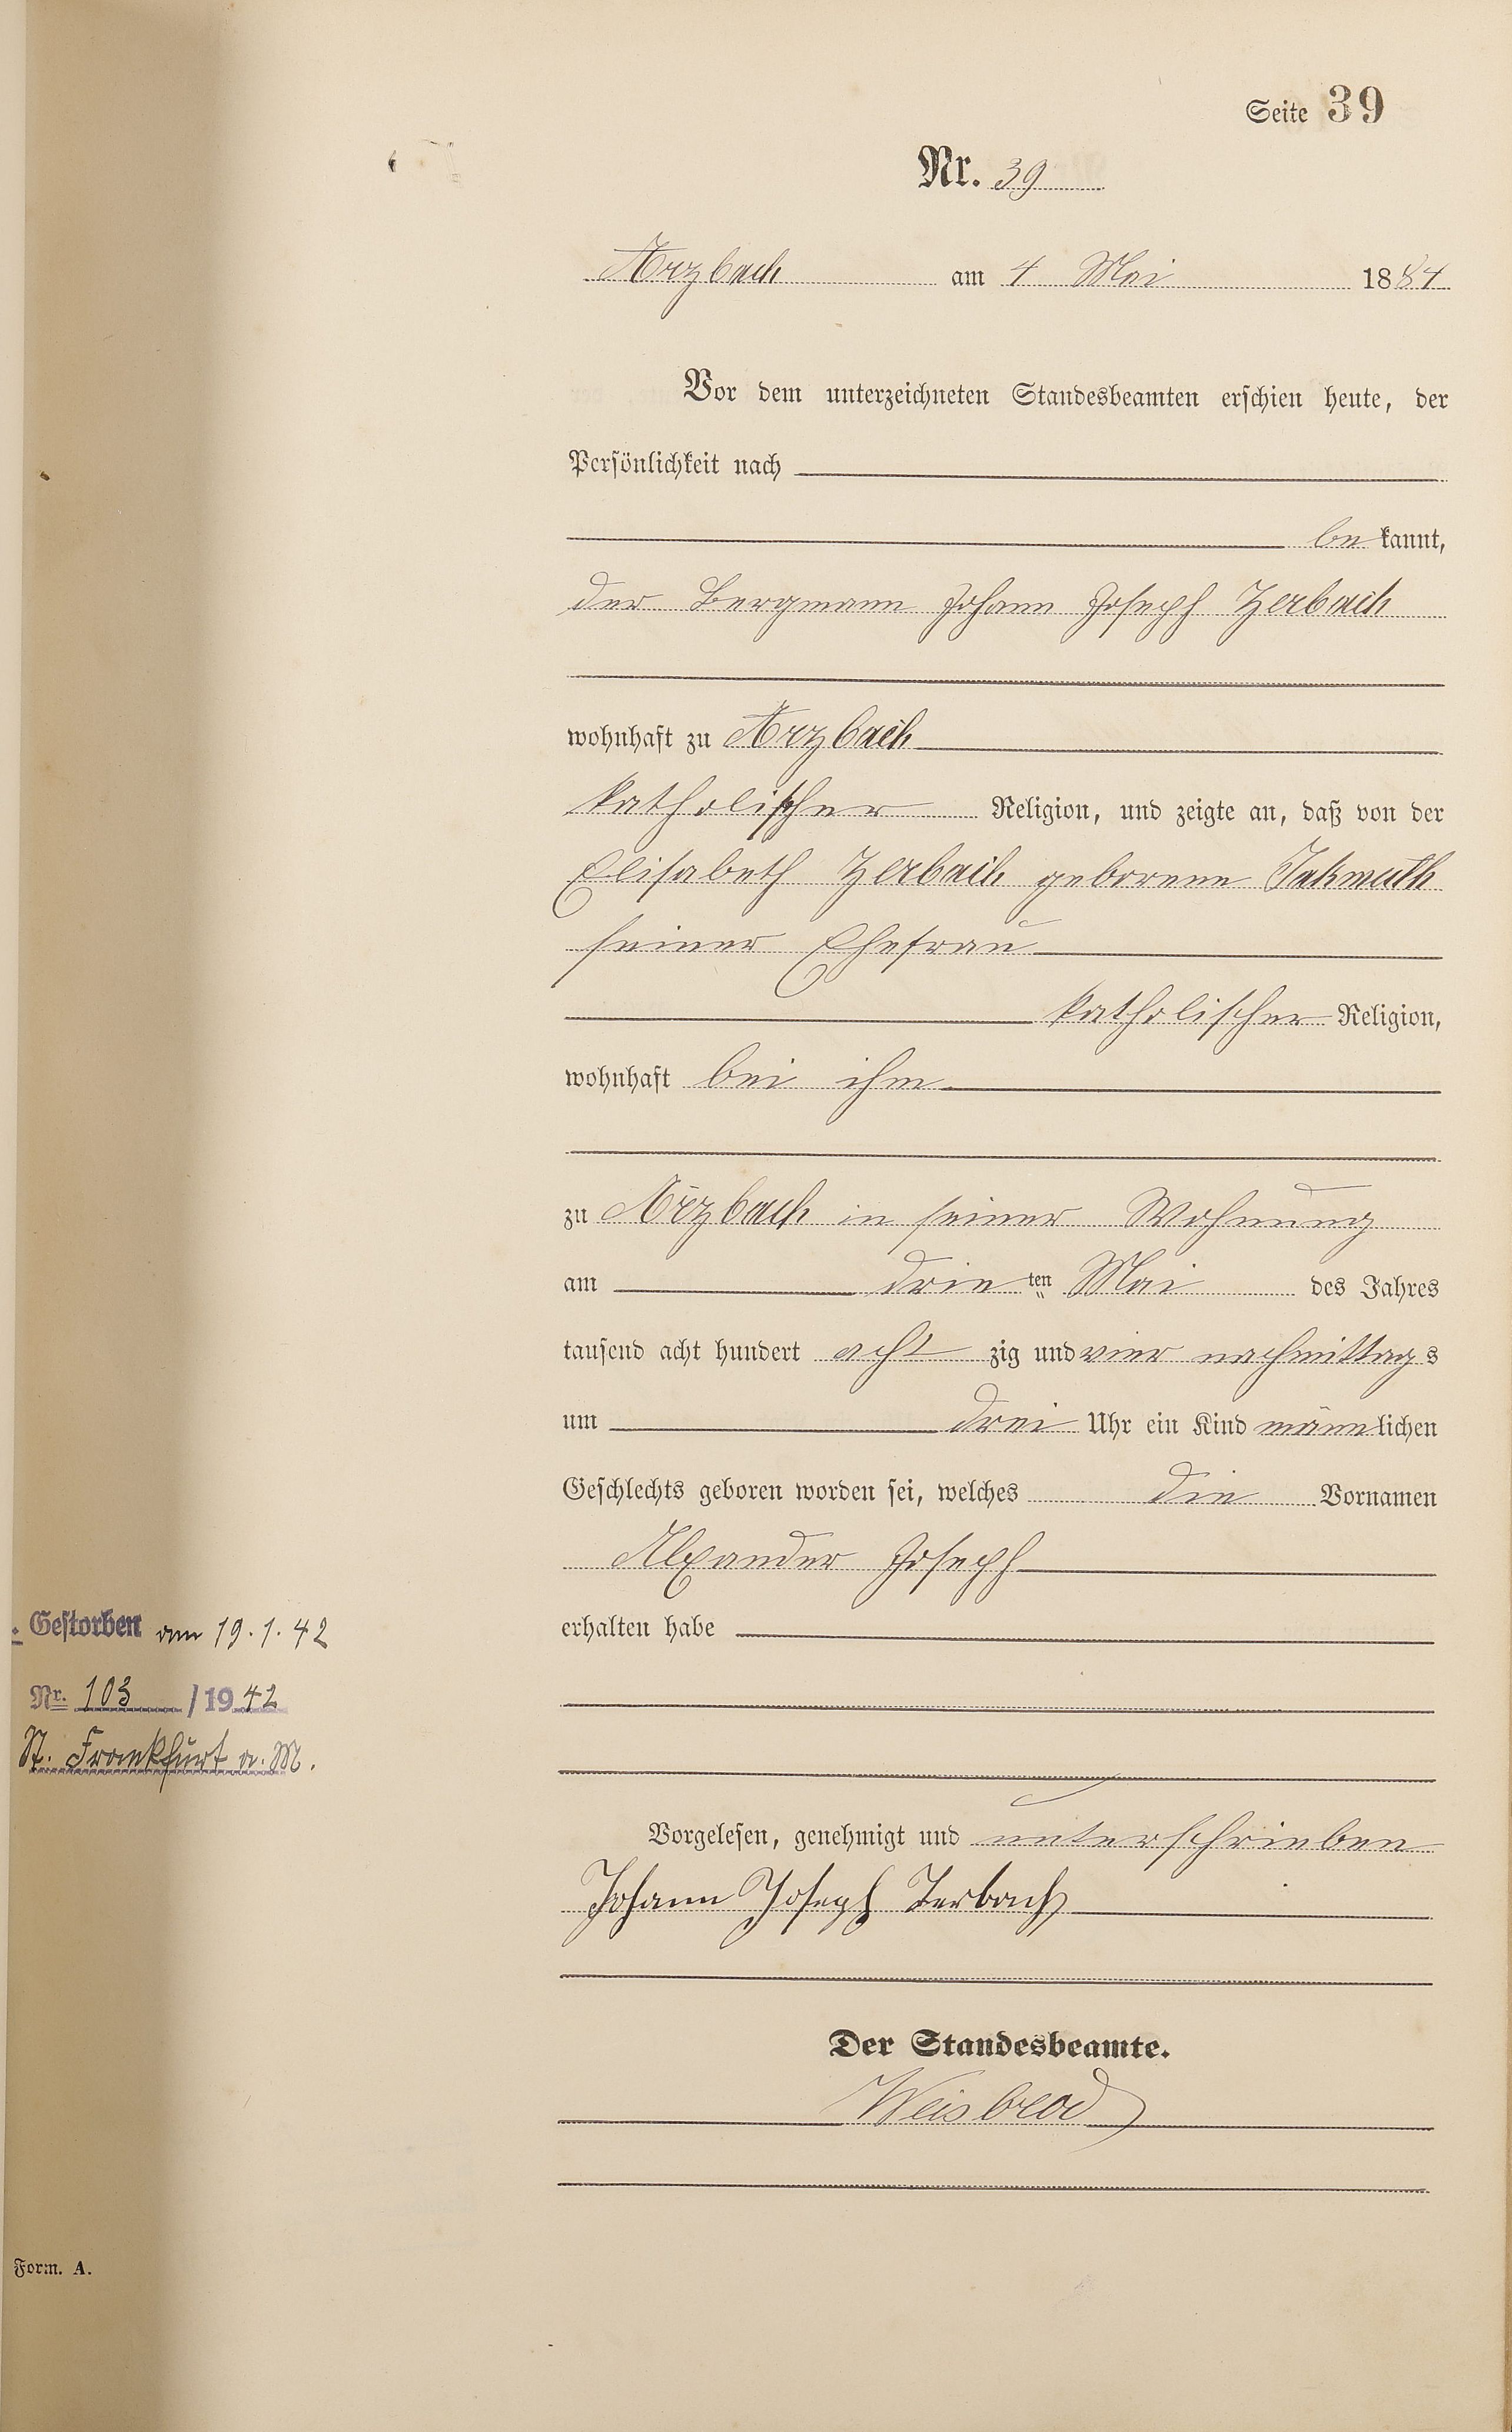 Seite 39
Nr. 39
Arzbach am 4 Mai 1884
Vor dem unterzeichneten Standesbeamten erschien heute, der
Persönlichkeit nach
be kannt,
der Bergmann Johann Joseph Zerbach
wohnhaft zu Arzbach
katholischer Religion, und zeigte an, daß von der
Elisabeth Zerbach geborene
seiner Ehefrau
katholischer Religion,
wohnhaft bei ihm
zu Arzbach in seiner Wohnung
am drie ten Mai des Jahres
tausend acht hundert acht zig und vier nachmittags
um drei Uhr ein Kind männlichen
Geschlechts geboren worden sei, welches die Vornamen
Alxander Joseph
erhalten habe
Gestorben am 19.1.42
Nr. 103 / 1942
St. Frankfurt a. M.
Vorgelesen, genehmigt und unterschrieben
Johann Joseph Zerbach
Der Standesbeamte.
Weisbrod
Form. A.